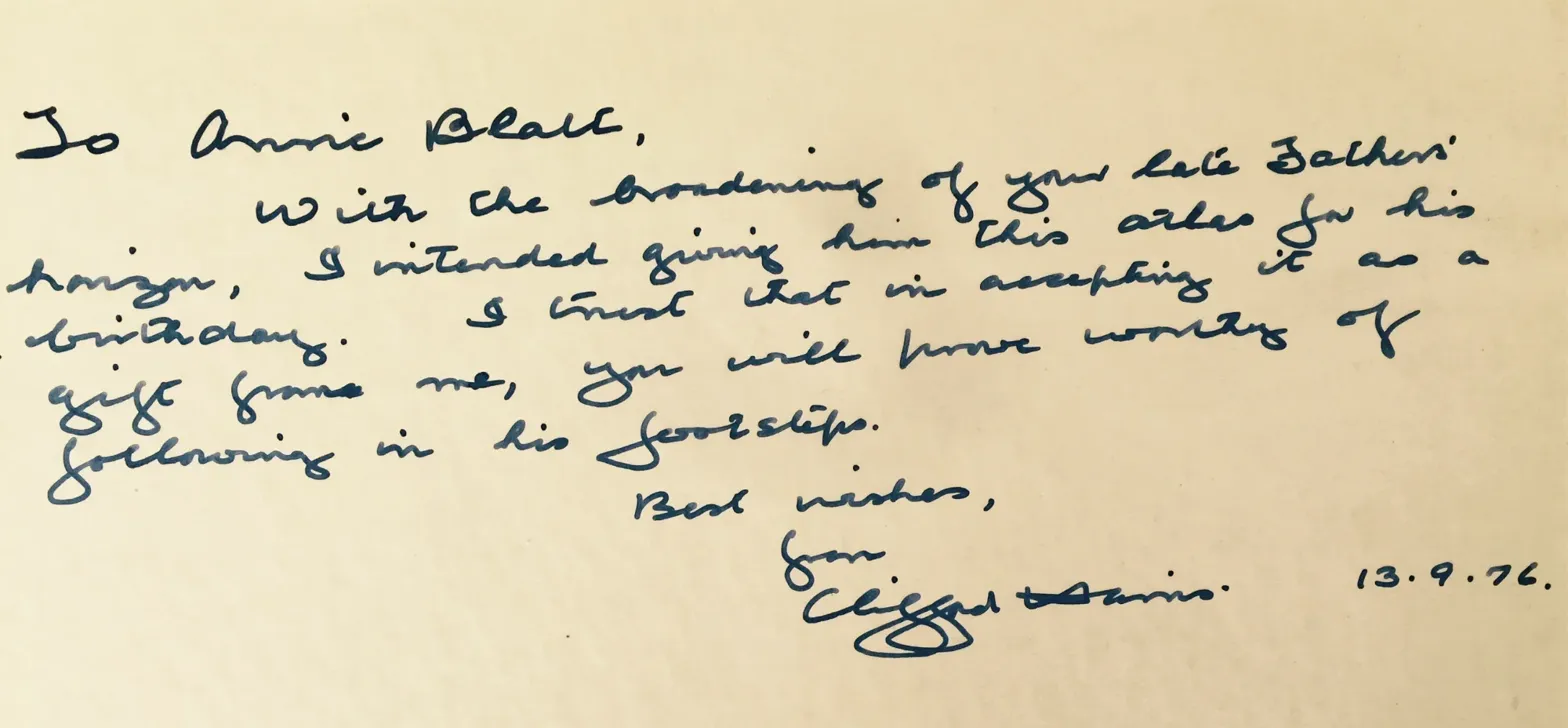 To Annie Blatt,
With the broadening of your late Fathers'
horizon, I intended giving him this atlas for his
birthday. I trust that in accepting it as a
gift from me, you will prove worthy of
following in his footsteps.
Best wishes,
from
Clifford Harris.
13.9.76.